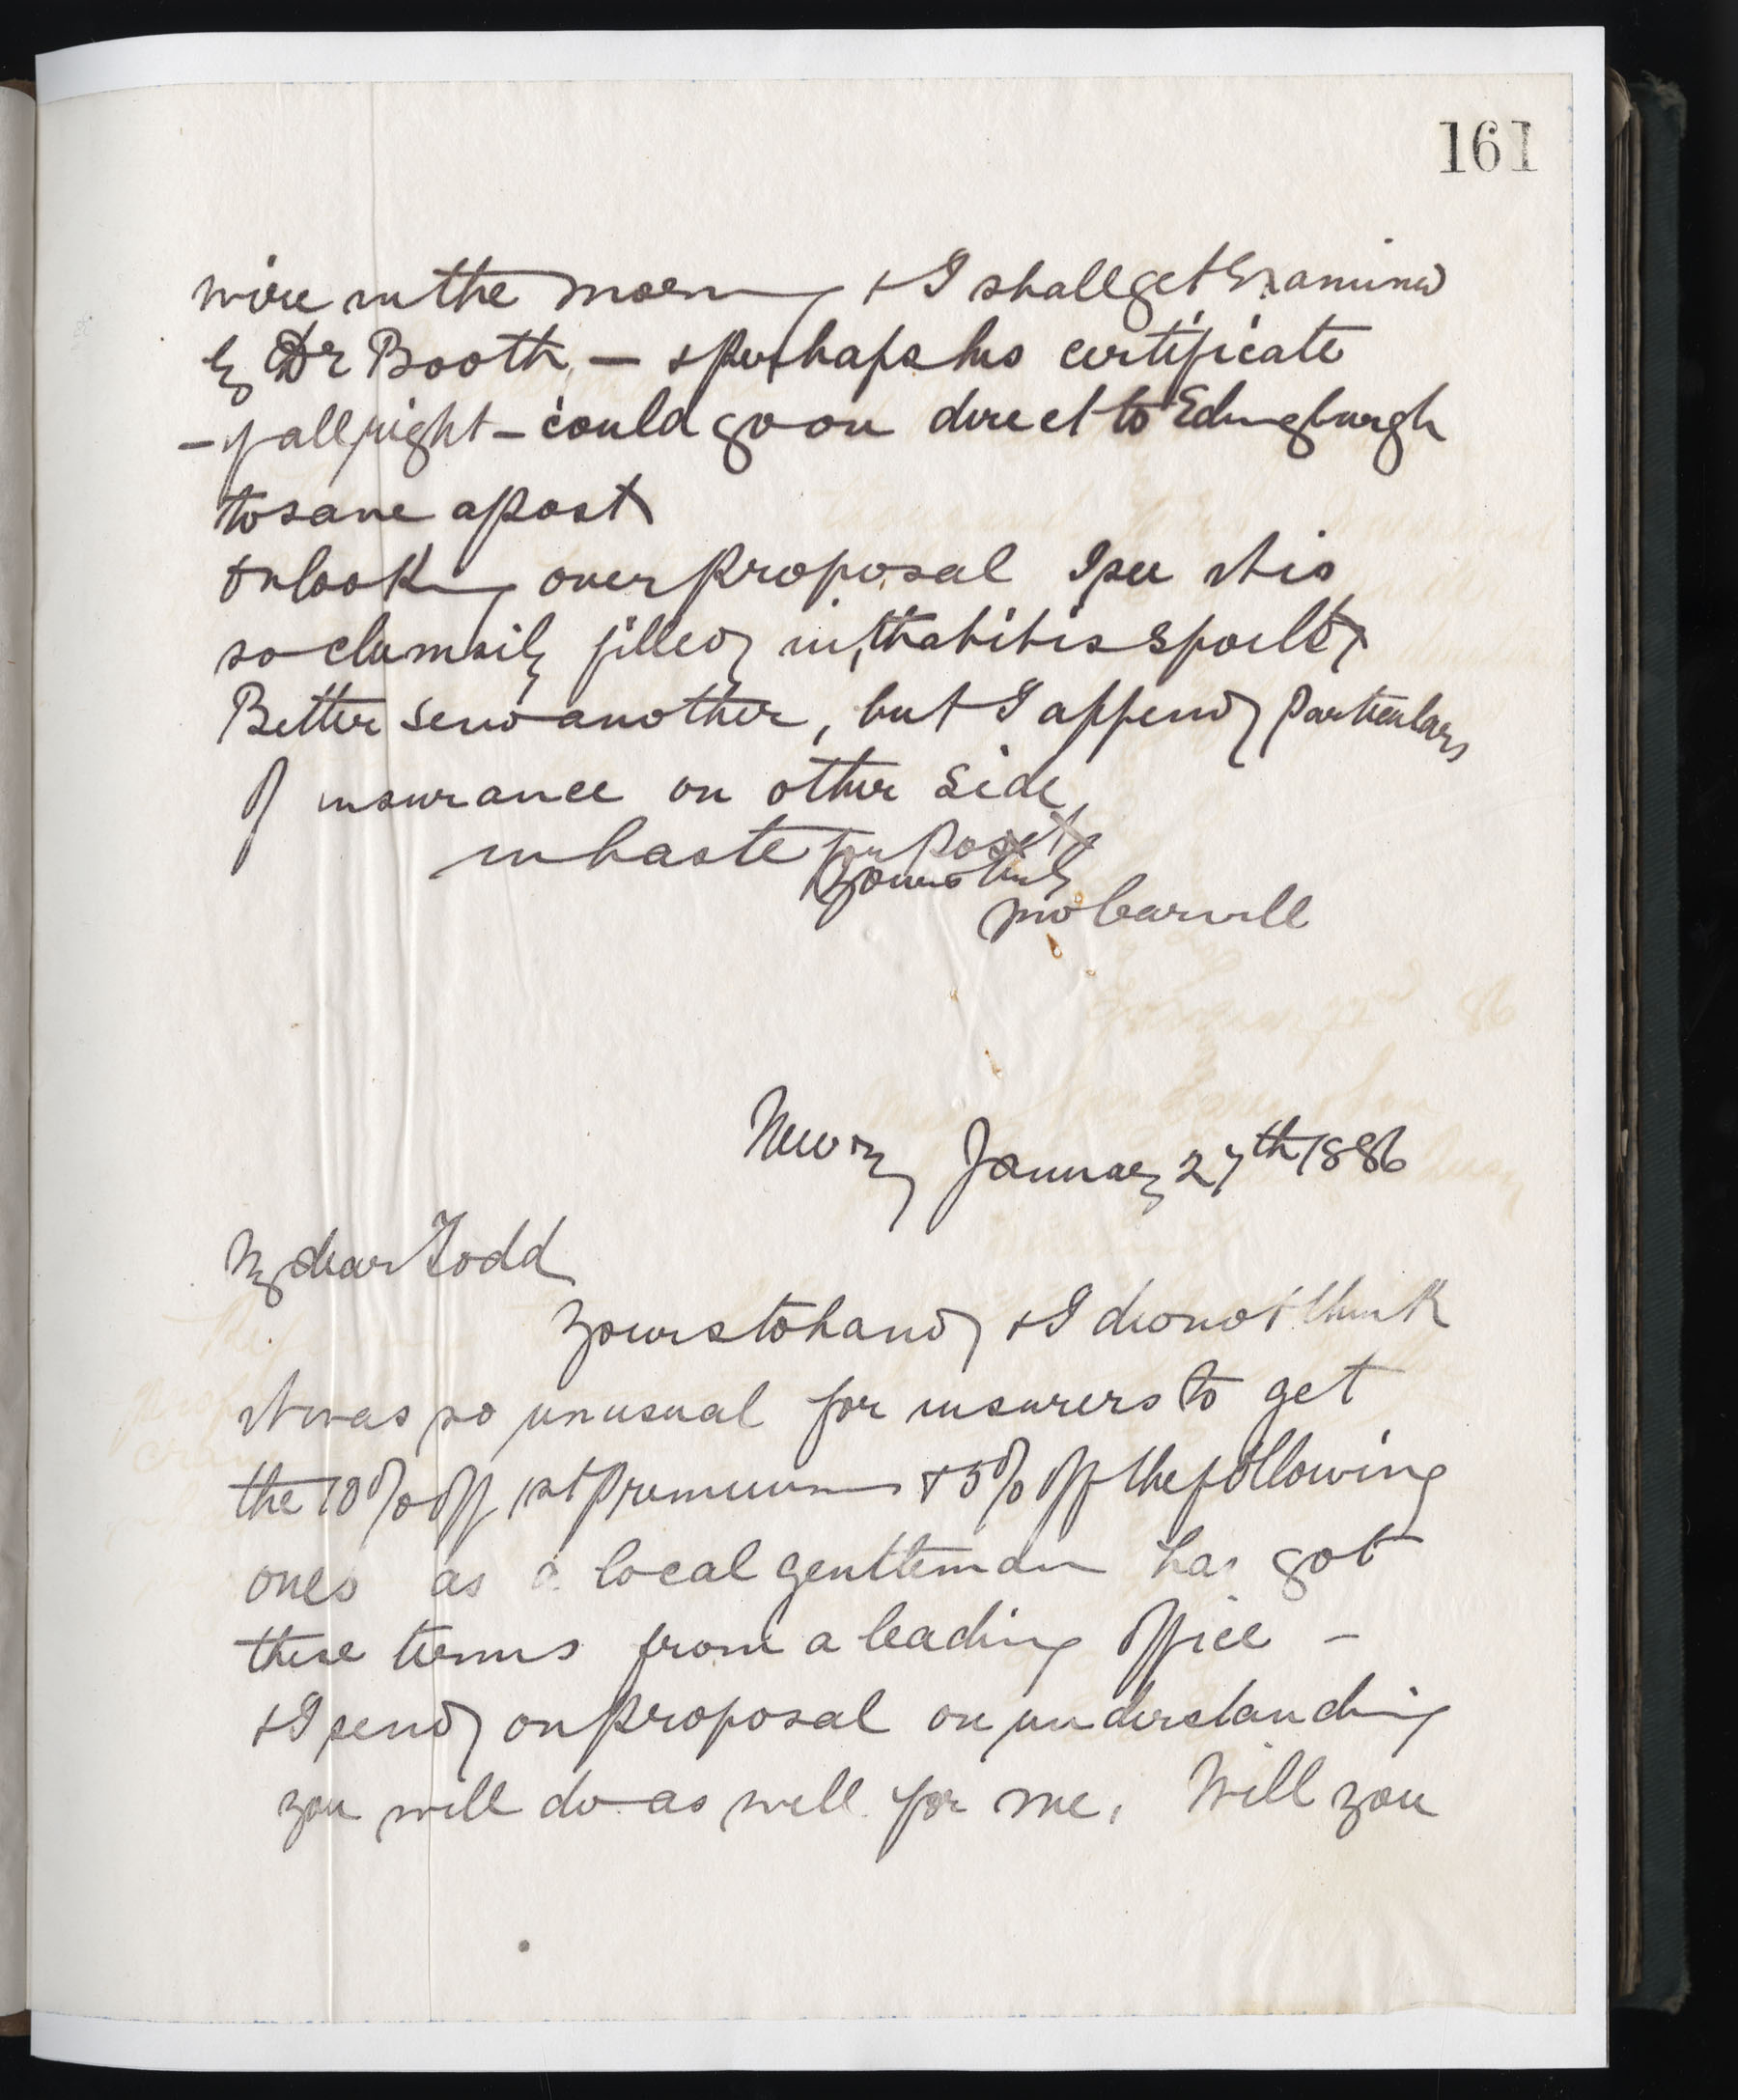 161
wire in the morning & I shall get Examined
by Dr Booth, — & perhaps his certificate
— if all right — could go on direct to Edingburgh
to save a post
On looking over proposal I see it is
so clumsily filled in, that it is spoilt,
Better send another, but I append particulars
of insurance on other side,
in haste for post
yours truly
Jno Carvill
Newry January 27th 1886
My dear Todd
Yours to hand & I did not think
it was so unusual for insurers to get
the 10% off 1st premium & 5% off the following
ones as a local gentleman has got
these terms from a leading office —
& I send on proposal on understanding
you will do as well for me. Will you